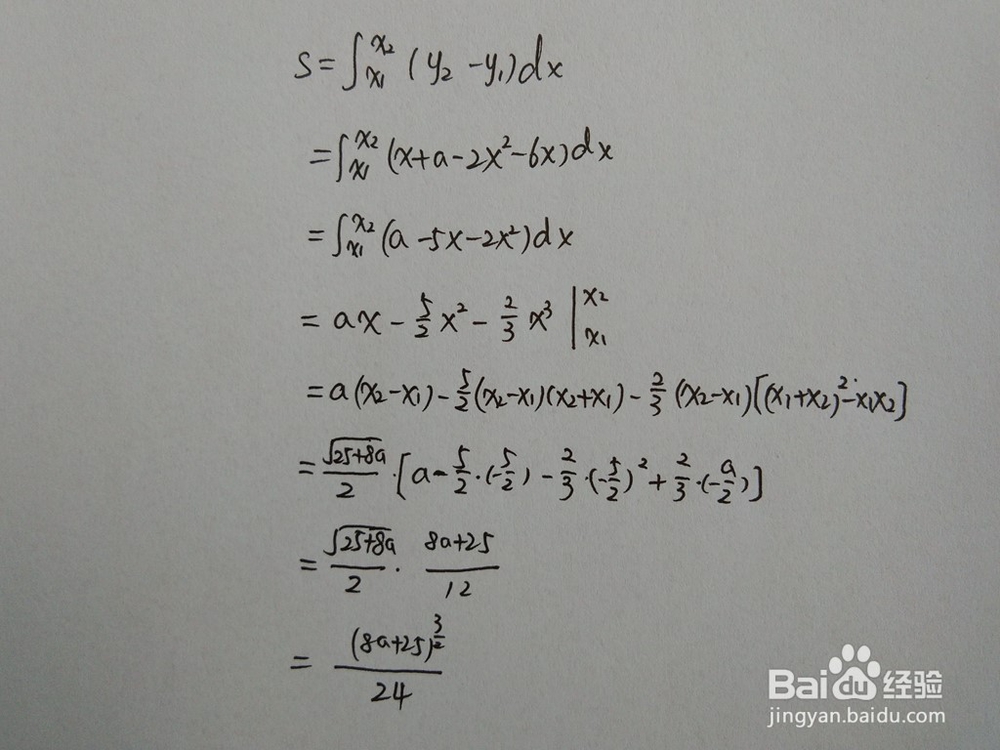 S=∫_{x₁}^{x₂} (y₂-y₁)dx
=∫_{x₁}^{x₂} (x+a-2x²-6x)dx
=∫_{x₁}^{x₂} (a-5x-2x²)dx
= ax - 5/2 x² - 2/3 x³ |_{x₁}^{x₂}
=a(x₂-x₁)-5/2(x₂-x₁)(x₂+x₁)-2/3(x₂-x₁)[(x₁+x₂)²-x₁x₂]
=√(25+8a)/2·[a-5/2·(-5/2)-2/3·(-5/2)²+2/3·(-a/2)]
=√(25+8a)/2·(8a+25)/12
=(8a+25)^{3/2}/24
Baidu经验
jingyan.baidu.com